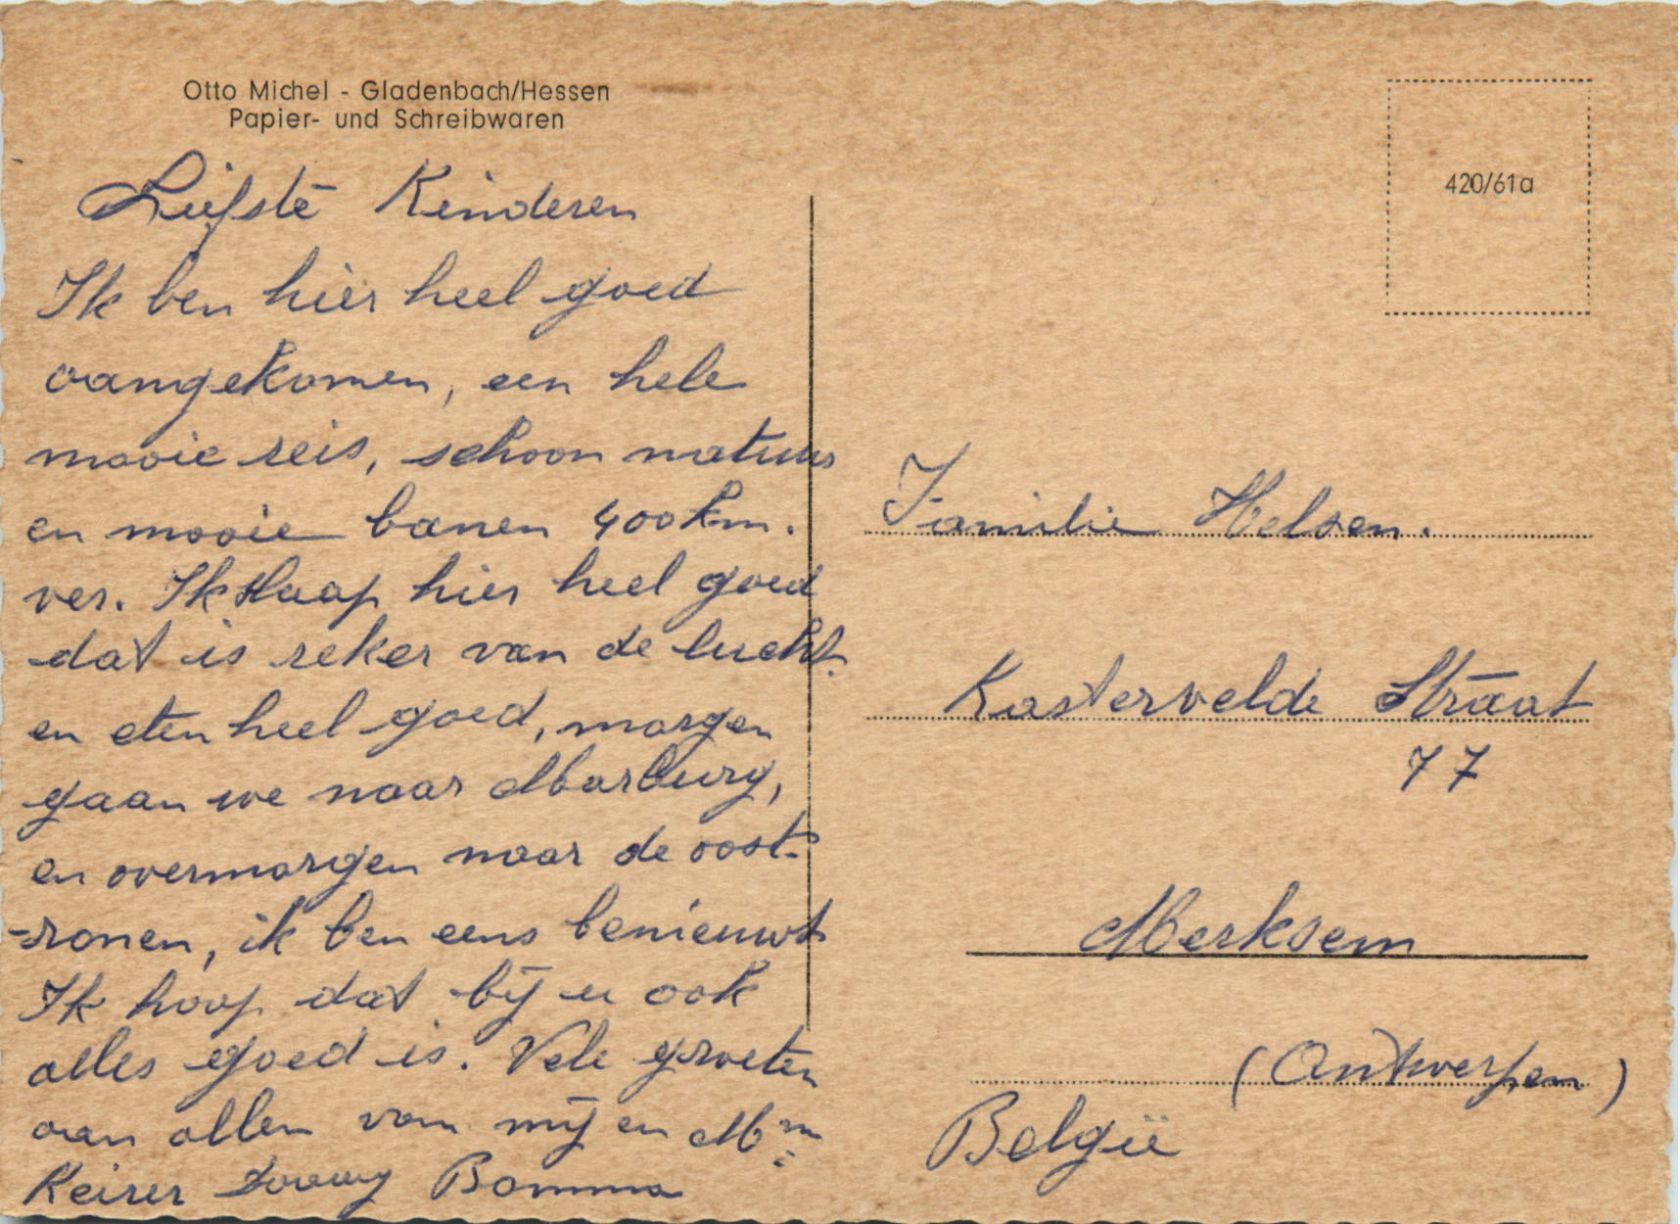 Otto Michel - Gladenbach/Hessen
Papier- und Schreibwaren
420/61a
Liefste Kinderen
Ik ben hier heel goed
aangekomen, een hele
mooie reis, schoon natuur
en mooie banen 400 km.
ver. Ik slaap hier heel goed
dat is zeker van de lucht.
en eten heel goed, morgen
gaan we naar Marburg,
en overmorgen naar de oost-
-zonen, ik ben eens benieuwt
Ik hoop dat bij u ook
alles goed is. Vele groeten
aan allen van mij en Mm
Keizer Bomma
Familie Helsen.
Kastervelde Straat
77
Merksem
(Antwerpen)
België